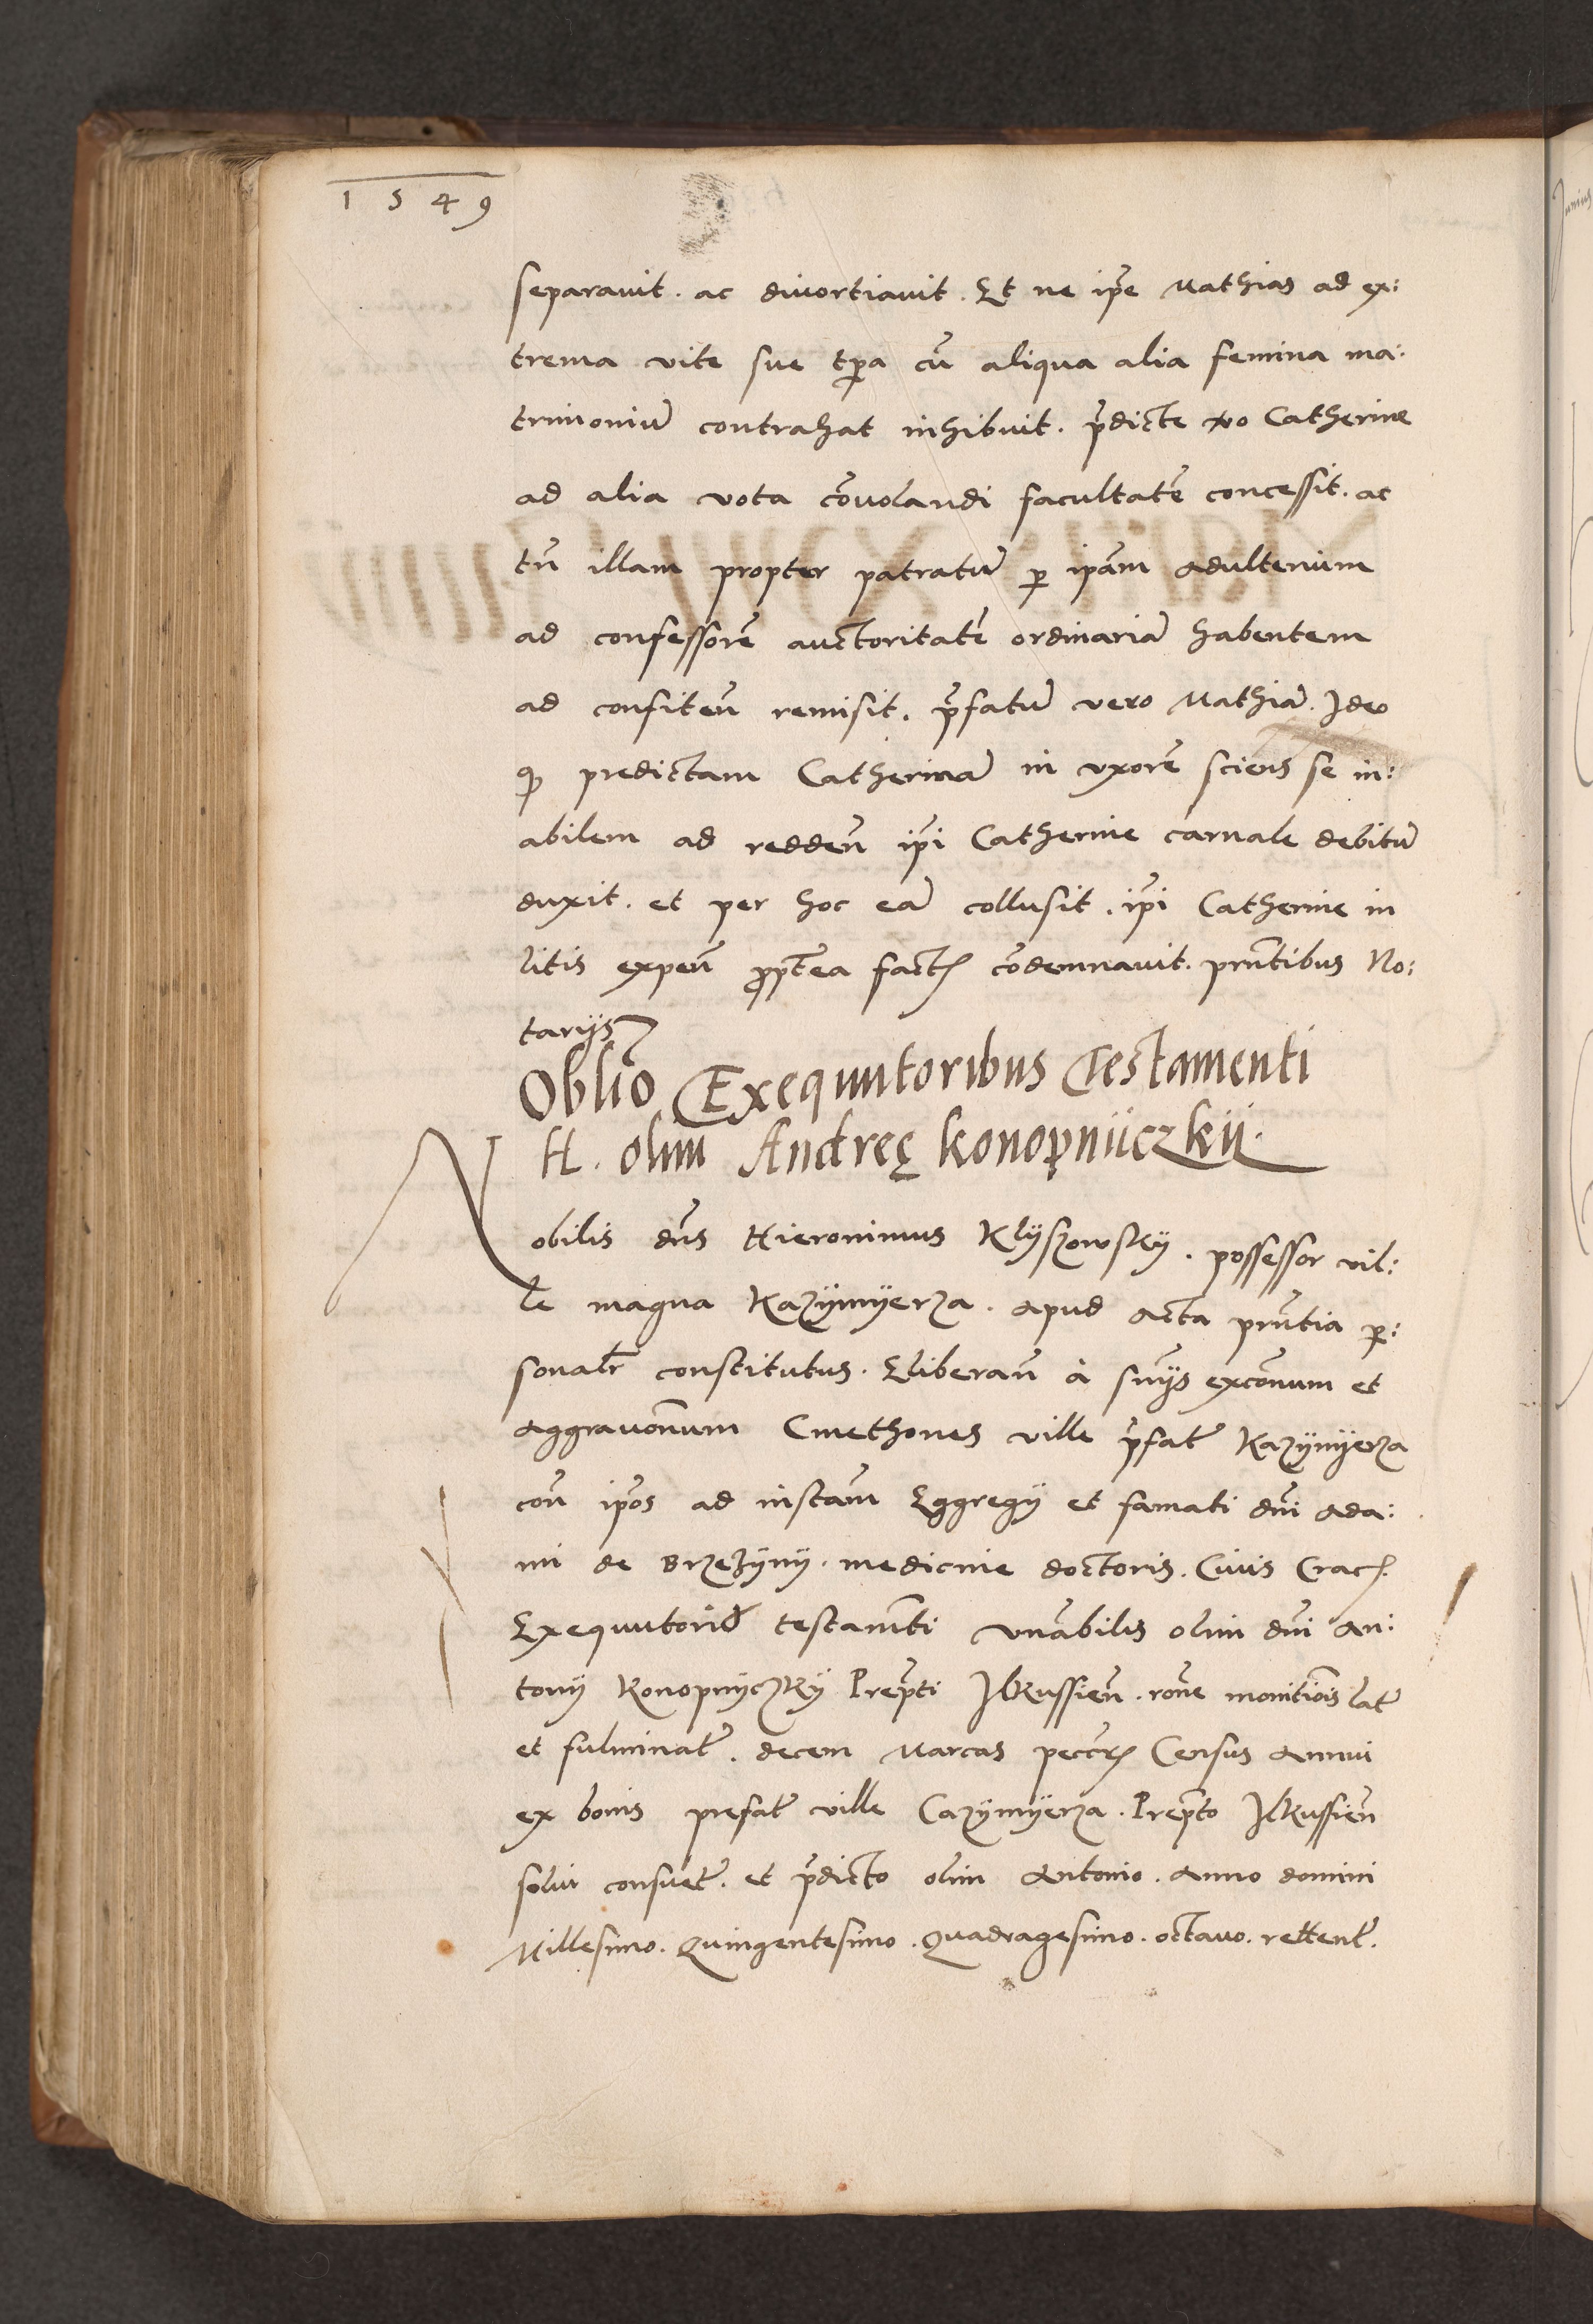 1549
separauit. ac diuortiauit. Et ne ip̃e Mathias ad ex:
trema vite sue tp̃a cũ aliqua alia femina ma:
trimoniũ contrahat inhibuit. p̃dicte vo Catherine
ad alia vota cõuolandi facultatẽ concessit. ac
tñ illam propter patratũ ꝑ ip̃am adulterium
ad confessorẽ auctoritatẽ ordinariã habentem
ad confiteñ remisit. p̃fatũ vero Mathiã. Ideo
ꝙ predictam Catherinã in vxorẽ sciens se in:
abilem ad reddeñ ip̃i Catherine carnale debitũ
duxit. et per hoc eã collusit. ip̃i Catherine in
litis expeñ ꝓptea factꝭ cõdemnauit. pñtibus No:
tarijs
Oblio Exequutoribus Testamenti
H. olim Andreę Konopniiczkii.
Nobilis dñs Hieronimus Klyszowsky. possessor vil:
le magna Kazÿmÿerza. apud acta pñtia ꝑ:
sonalr̃ constitutus. Eliberañ à snÿs excõnum et
aggrauõnum Cmethones ville p̃fat̃ Kazÿmÿerza
coñ ip̃os ad instañ Eggregÿ et famati dñi Ada:
mi de Brzezÿnÿ. medicine doctoris. Ciuis Cracꝭ.
Exequutoris testam̃ti vnãbilis olim dñi An:
tonÿ Konopnÿczkÿ Prep̃ti Ilkussieñ. rõne monitiõis lat̃
et fulminat̃. decem Marcas peccꝭ Census annui
ex bonis prefat̃ ville Cazÿmÿerza. Prep̃to Ilkussieñ
solui consuet̃. et p̃dicto olim Antonio. Anno domini
Millesimo. Quingentesimo. Quadragesimo. octauo. retent̃.